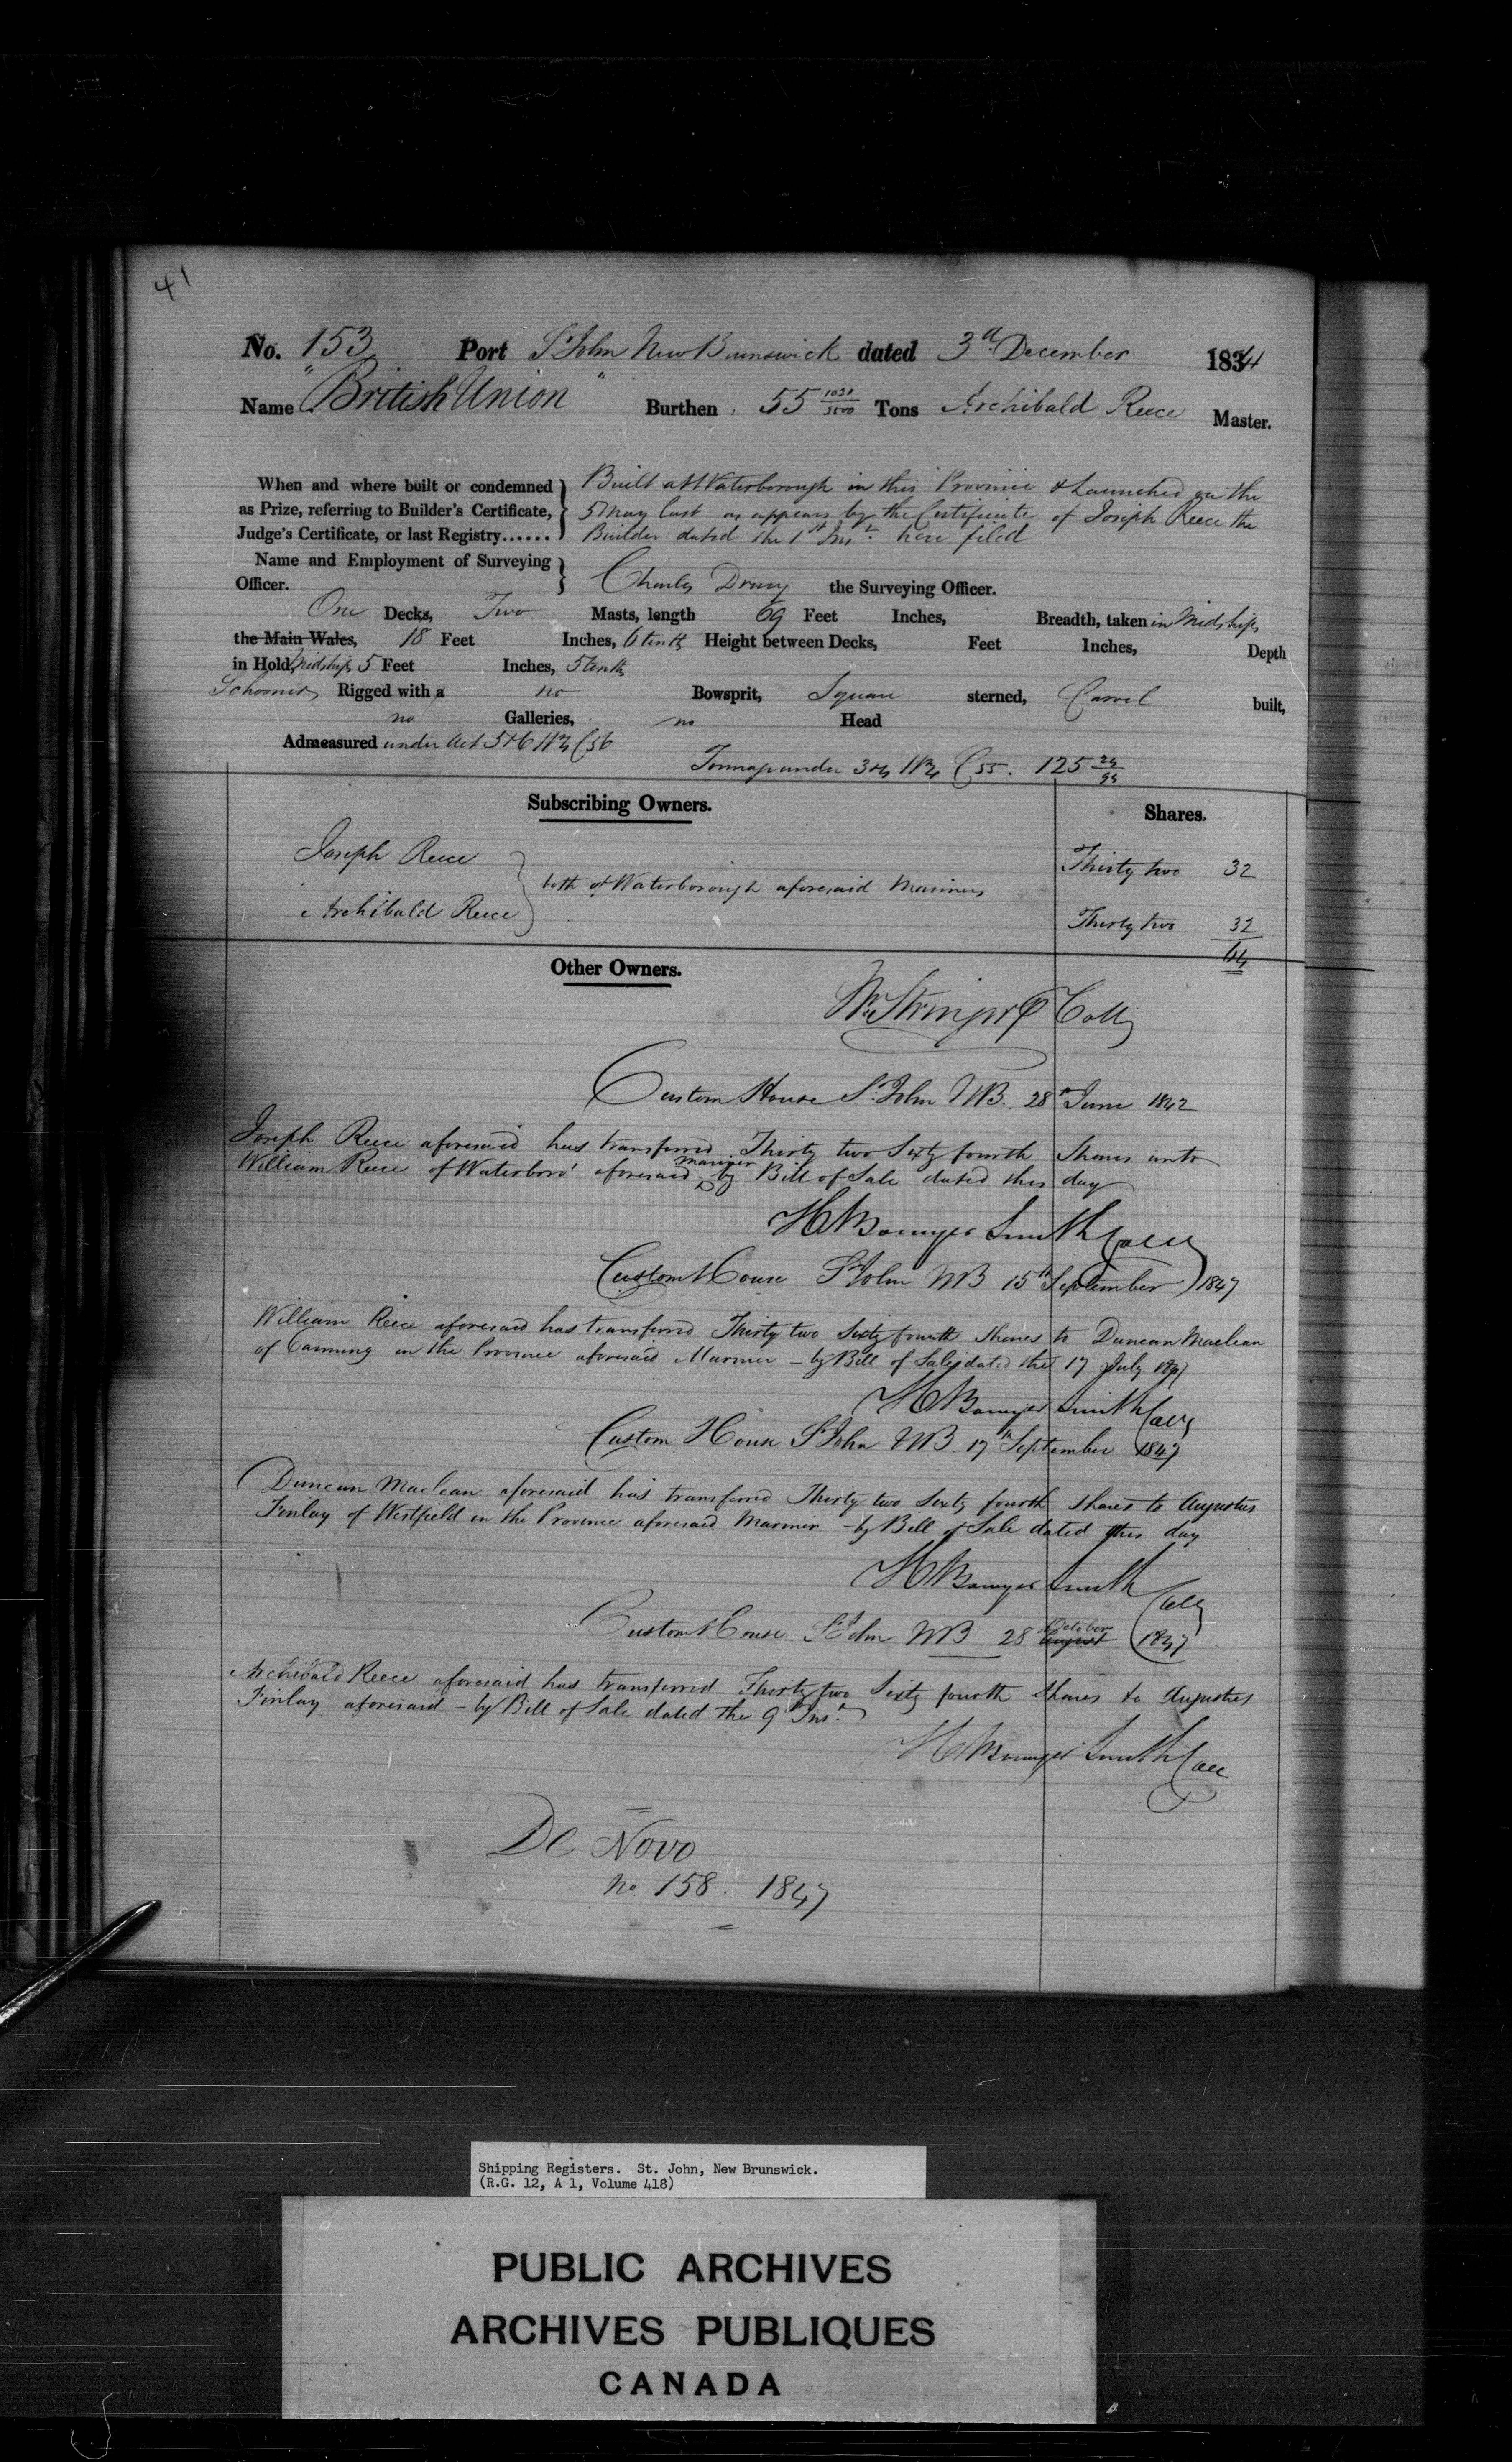 41
No. 153 Port St John New Brunswick dated 3d December 1841
Name "British Union" Burthen 55 1031/3500 Tons Archibald Reece Master.
When and where built or condemned as Prize, referring to Builder's Certificate, Judge's Certificate, or last Registry......
Built at Waterborough in this Province & Launched on the
5 May last as appears by the Certificate of Joseph Reece the
Builder dated the 1st Inst. here filed
Name and Employment of Surveying Officer.
Charles Drury the Surveying Officer.
One Decks, Two Masts, length 69 Feet Inches, Breadth, taken in Midships
the Main Wales, 18 Feet Inches, 6 tenths Height between Decks, Feet Inches, Depth
in Hold Midships 5 Feet Inches, 5 tenths
Schooner Rigged with a no Bowsprit, Square sterned, Carvel built,
no Galleries, no Head
Admeasured under Act 5&6 W4 C56
Tonnage under 3&4 W4 C55. 125 24/94
Subscribing Owners. Shares.
Joseph Reece Thirty two 32
both of Waterborough aforesaid Mariners
Archibald Reece Thirty two 32
64
Other Owners.
Custom House St John NB. 28th June 1842
Joseph Reece aforesaid has transferred Thirty two Sixty fourth Shares unto
William Reece of Waterboro' aforesaid mariner by Bill of Sale dated this day
H Bowyer Smith Coll
Custom House St John NB 15th September 1847
William Reece aforesaid has transferred Thirty two Sixty fourth Shares to Duncan Maclean
of Canning in the Province aforesaid Mariner - by Bill of Sale dated the 17 July 1847
H Bowyer Smith Coll
Custom House St John NB 17th September 1847
Duncan Maclean aforesaid has transferred Thirty two Sixty fourth shares to Augustus
Finlay of Westfield in the Province aforesaid Mariner - by Bill of Sale dated this day
H Bowyer Smith Coll
Custom House St John NB 28 August October 1847
Archibald Reece aforesaid has transferred Thirty two Sixty fourth Shares to Augustus
Finlay aforesaid - by Bill of Sale dated the 9th Inst.
H Bowyer Smith Coll
De Novo
No. 158. 1847
Shipping Registers. St. John, New Brunswick.
(R.G. 12, A 1, Volume 418)
PUBLIC ARCHIVES
ARCHIVES PUBLIQUES
CANADA